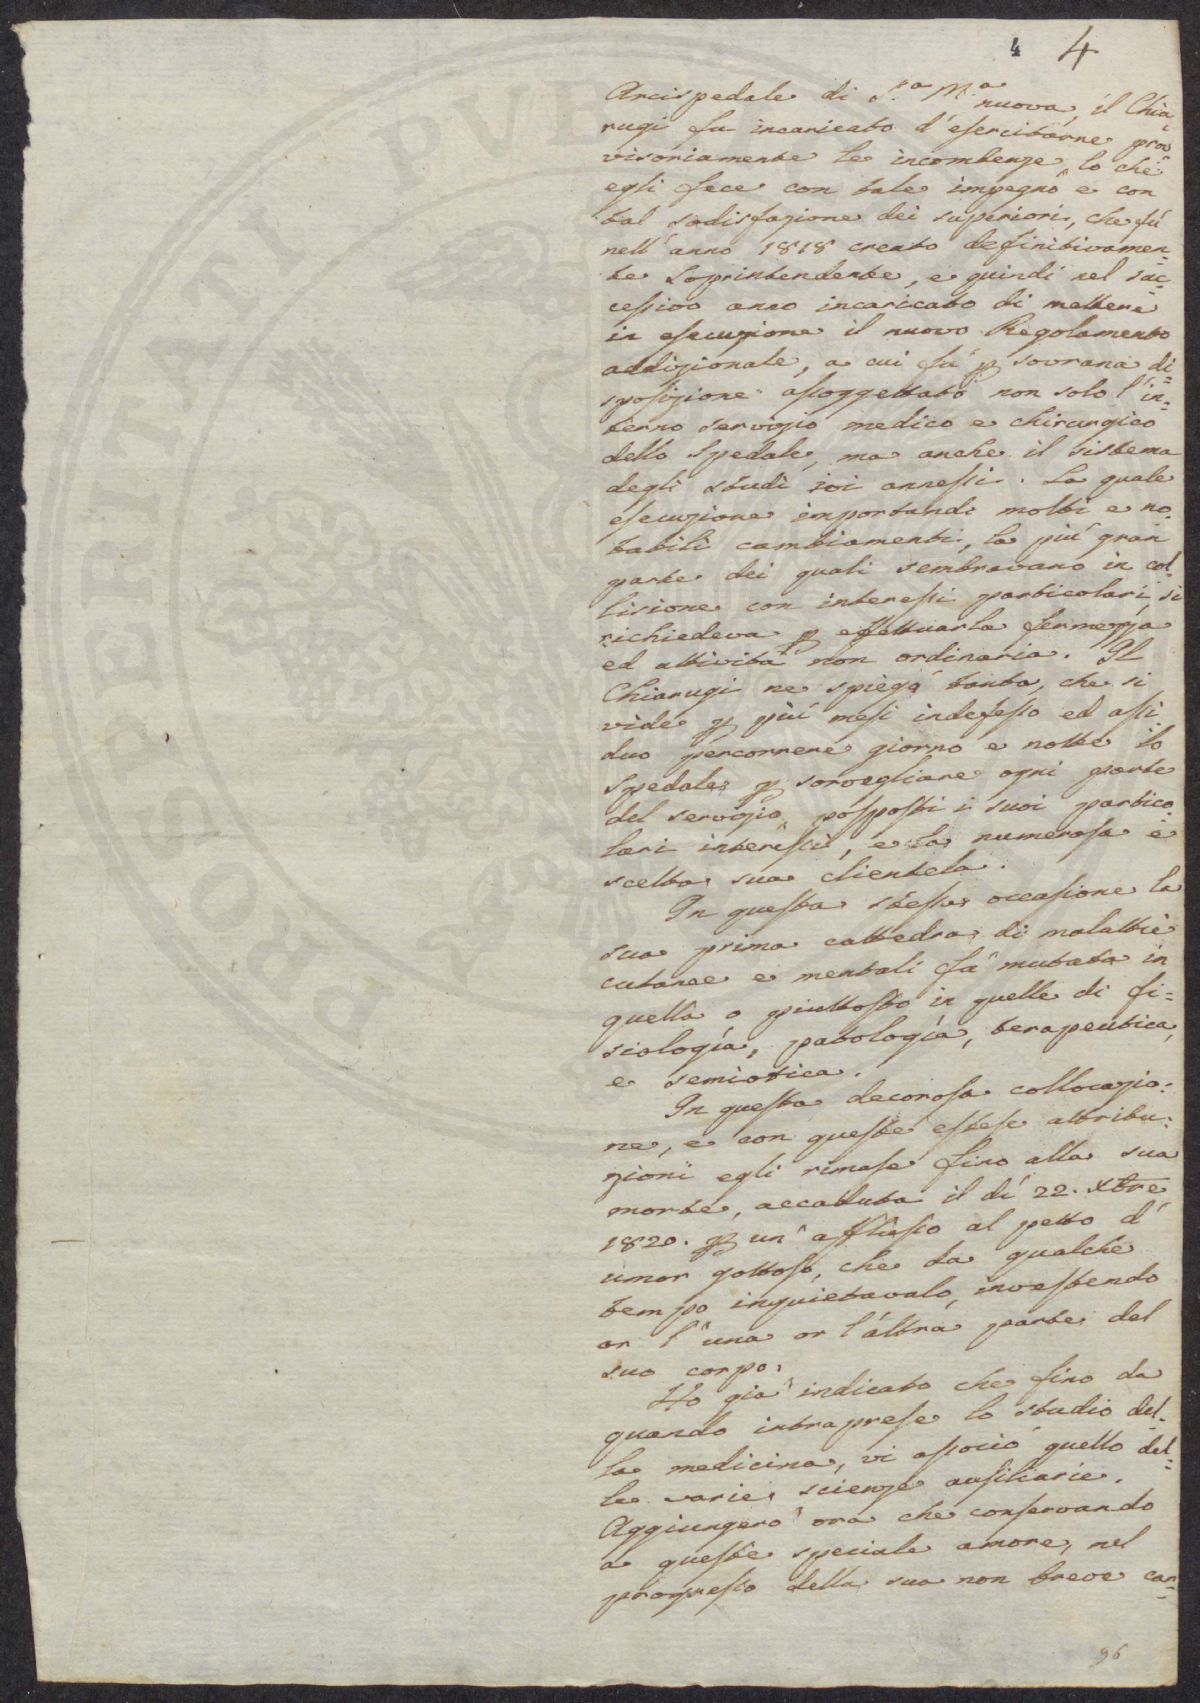 4 4
Arcispedale di S.ª M.ª nuova, il Chia-
rugi fu incaricato d'esercitarne prov
visoriamente le incombenze, lo che
egli fece con tale impegno e con
tal sodisfazione dei superiori, che fù
nell'anno 1818 creato definitivamen-
te Soprintendente, e quindi nel suc-
cessivo anno incaricato di mettere
in esecuzione il nuovo Regolamento
addizionale, a cui fù p sovrana di=
sposizione assoggettato non solo l'in=
terno servizio medico e chirurgico
dello Spedale, ma anche il sistema
degli studi ivi annessi. La quale
esecuzione importando molti e no-
tabili cambiamenti, la più gran
parte dei quali sembravano in col-
lisione con interessi particolari, si
richiedeva p effettuarla fermezza
ed attività non ordinaria. Il
Chiarugi ne spiegò tanta, che si
vide p più mesi indefesso ed assi
duo percorrere giorno e notte lo
Spedale p sorvegliare ogni parte
del servizio, posposti i suoi partico
lari interessi, e la numerosa e
scelta sua clientela.
In questa stessa occasione la
sua prima cattedra di malattie
cutanee e mentali fù mutata in
quella o piuttosto in quelle di fi=
siologìa, patologìa, terapeutica,
e semiotica.
In questa decorosa collocazio=
ne, e con queste estese attribu=
zioni egli rimase fino alla sua
morte, accaduta il dì 22. Xbre
1820. p un'afflusso al petto d'
umor gottoso, che da qualche
tempo inquietavalo, investendo
or l'una or l'altra parte del
suo corpo.
Ho già indicato che fino da
quando intraprese lo studio del-
la medicina, vi associò quello del=
le varie scienze ausiliarie.
Aggiungerò ora che conservando
a queste speciale amore, nel
progresso della sua non breve car=
96
PVBLI